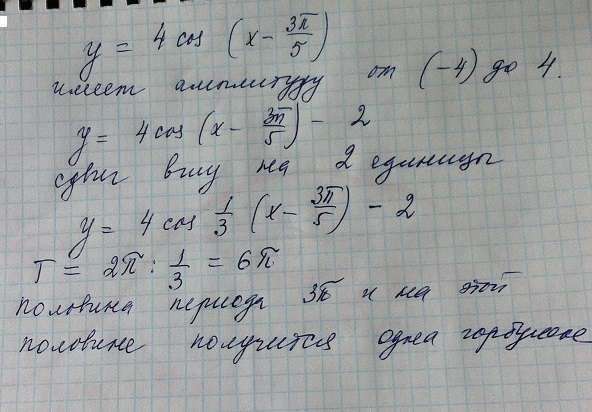 y = 4 cos (x - 3π/5)
имеет амплитуду от (-4) до 4.
y = 4 cos (x - 3π/5) - 2
сдвиг вниз на 2 единицы
y = 4 cos 1/3 (x - 3π/5) - 2
T = 2π : 1/3 = 6π
половина периода 3π и на этой
половине получится одна горбушка